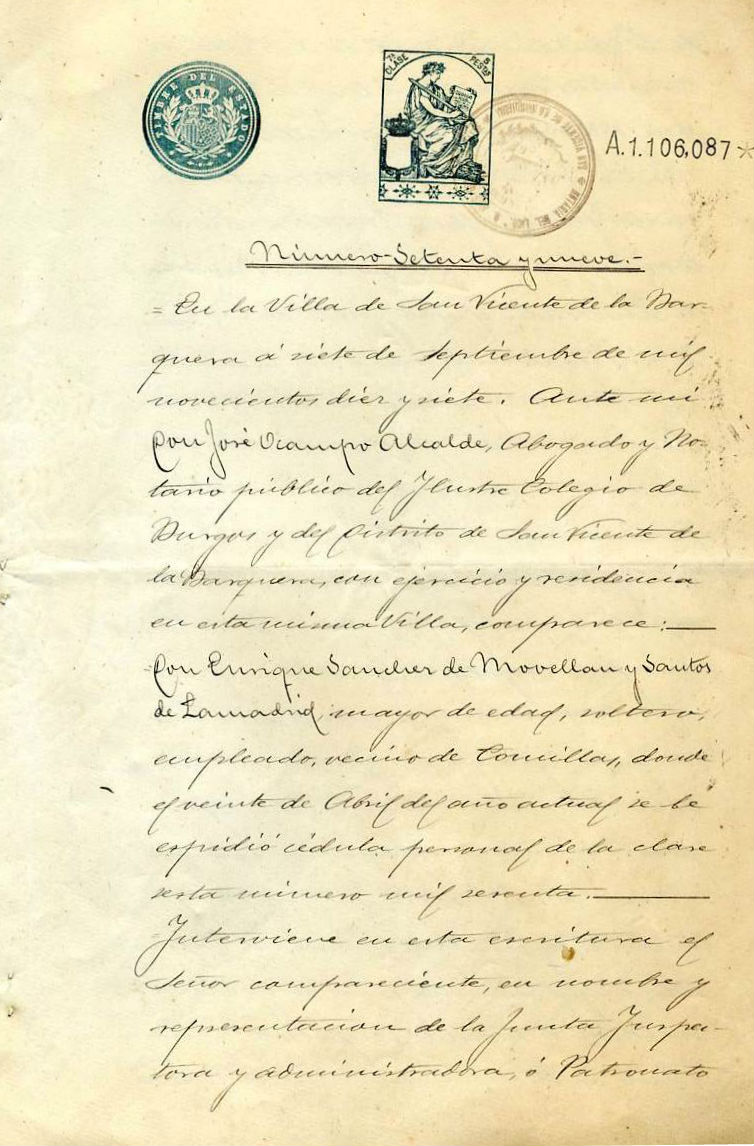 TIMBRE DEL ESTADO
7ª CLASE
5 PESTAS
A.1.106,087*
Número-Setenta y nueve.-
= En la Villa de San Vicente de la Bar-
quera á siete de Septiembre de mil
novecientos diez y siete. Ante mi
Don José Ocampo Alcalde, Abogado y No-
tario público del Ilustre Colegio de
Burgos y del Distrito de San Vicente de
la Barquera, con ejercicio y residencia
en esta misma Villa, comparece:
Don Enrique Sanchez de Movellan y Santos
de Lamadrid, mayor de edad, soltero,
empleado, vecino de Comillas, donde
el veinte de Abril del año actual se le
espidió cédula personal de la clase
sesta número mil sesenta.
Interviene en esta escritura el
Señor compareciente, en nombre y
representacion de la Junta Inspec-
tora y administradora, ó Patronato